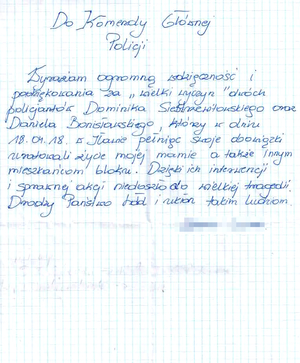 Do Komendy Głównej
Policji
Wyrażam ogromną wdzięczność i
podziękowania za „wielki wyczyn" dwóch
policjantów Dominika oraz
Daniela Borisławskiego, którzy w dniu
18.01.18. w Iławie pełniąc swoje obowiązki
uratowali życie mojej mamie a także innym
mieszkańcom bloku. Dzięki ich interwencji
i sprawnej akcji niedoszło do wielkiej tragedii.
Drodzy Państwo hołd i ukłon takim ludziom.